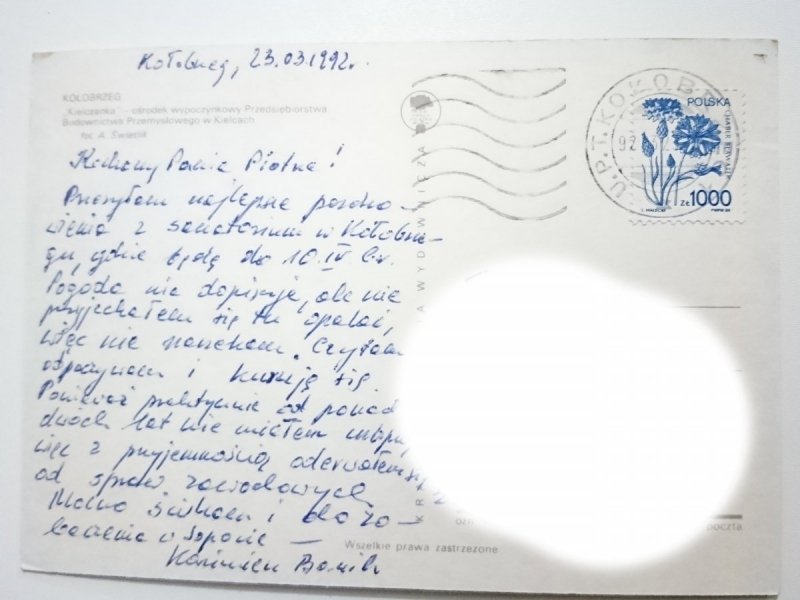 Kołobrzeg, 23.03.1992r.
KOŁOBRZEG
"Kielczanka" - ośrodek wypoczynkowy Przedsiębiorstwa
Budownictwa Przemysłowego w Kielcach
fot. A. Świetlik
POLSKA
CHABER BŁAWATEK
ZŁ 1000
U.P.T. KOŁOBRZ
92
Kochany Panie Piotrze!
Przesyłam najlepsze pozdro-
wienia z sanatorium w Kołobrze-
gu, gdzie będę do 10.IV br.
Pogoda nie dopisuje, ale nie
przyjechałem się tu opalać,
więc nie narzekam. Czytam
odpoczywam i kuruję się.
Ponieważ praktycznie od ponad
dwóch lat nie miałem
więc z przyjemnością oderwałem się
od spraw zawodowych
Mocno ściskam i do zo-
baczenia w Sopocie —
Kazimierz
WYDAWNICZA
Wszelkie prawa zastrzeżone
poczta